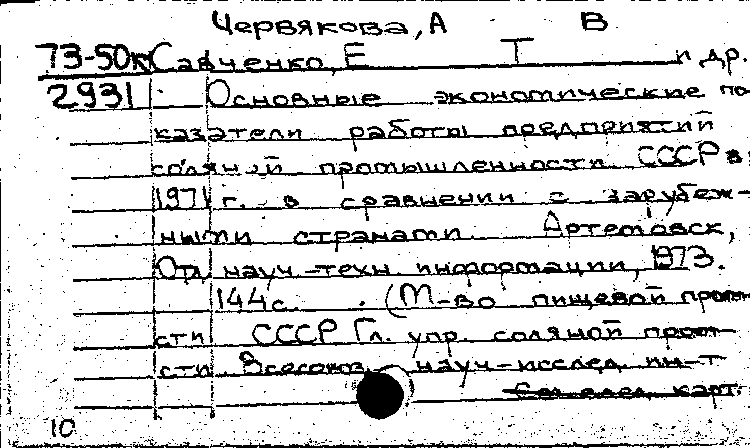 Червякова, А В
73-50к Савченко, Е Т и др.
2931 Основные экономические по-
казатели работы предприятий
соляной промышленности СССР в
1971 г. в сравнении с зарубеж-
ными странами. Артемовск,
Отд науч-техн информации, 1973.
144с. (М-во пищевой пром-
сти СССР Гл. упр. соляной пром-
сти Всесоюз. науч-исслед. ин-т
См след. карт.
10